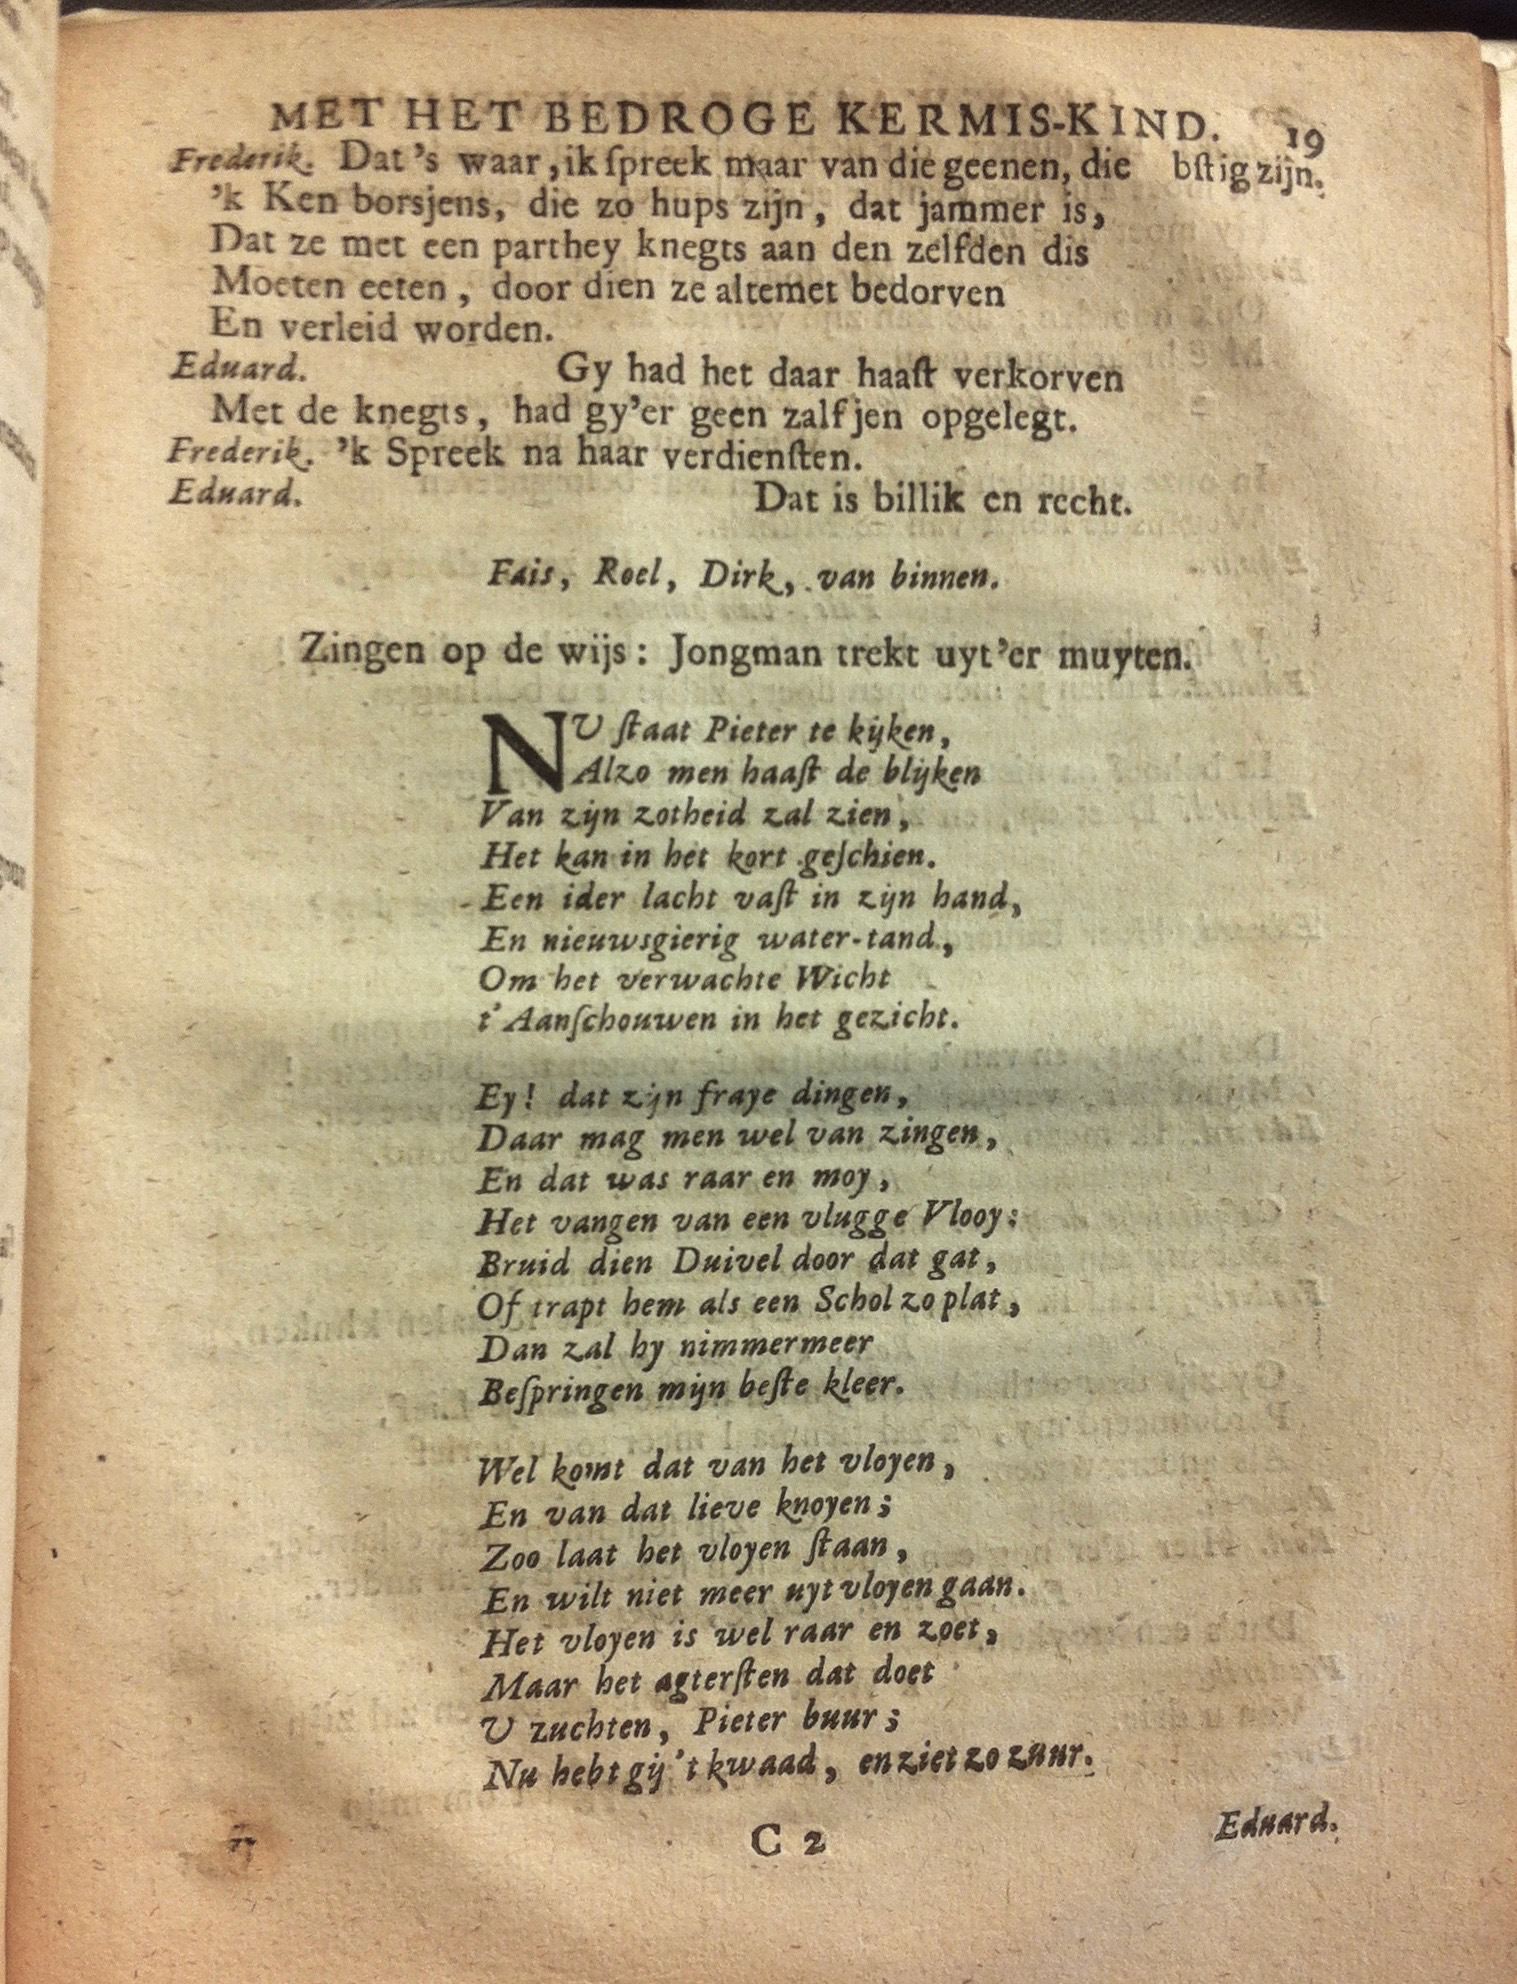 MET HET BEDROGE KERMIS-KIND. 19
Frederik. Dat 's waar, ik ſpreek maar van die geenen, die bſtig zijn.
'k Ken borsjens, die zo hups zijn, dat jammer is,
Dat ze met een parthey knegts aan den zelfden dis
Moeten eeten, door dien ze altemet bedorven
En verleid worden.
Eduard. Gy had het daar haaſt verkorven
Met de knegts, had gy'er geen zalfjen opgelegt.
Frederik. 'k Spreek na haar verdienſten.
Eduard. Dat is billik en recht.
Fais, Roel, Dirk, van binnen.
Zingen op de wijs: Jongman trekt uyt'er muyten.
NU ſtaat Pieter te kijken,
Alzo men haaſt de blijken
Van zijn zotheid zal zien,
Het kan in het kort geſchien.
Een ider lacht vaſt in zijn hand,
En nieuwsgierig water-tand,
Om het verwachte Wicht
t' Aanſchouwen in het gezicht.
Ey! dat zijn fraye dingen,
Daar mag men wel van zingen,
En dat was raar en moy,
Het vangen van een vlugge Vlooy:
Bruid dien Duivel door dat gat,
Of trapt hem als een Schol zo plat,
Dan zal hy nimmermeer
Beſpringen mijn beſte kleer.
Wel komt dat van het vloyen,
En van dat lieve knoyen;
Zoo laat het vloyen ſtaan,
En wilt niet meer uyt vloyen gaan.
Het vloyen is wel raar en zoet,
Maar het agterſten dat doet
U zuchten, Pieter buur;
Nu hebt gij 't kwaad, en ziet zo zuur.
C 2
Eduard.